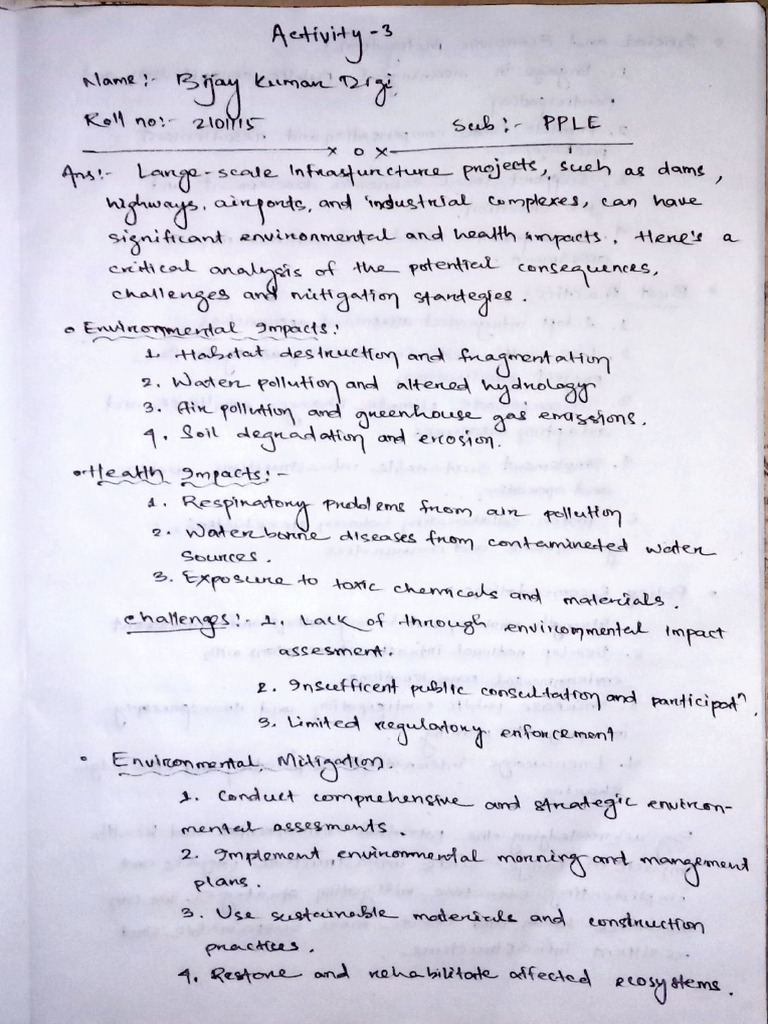 Activity-3
Name:- Bijay Kumar Digi
Roll no:- 2101115 Sub:- PPLE
x o x
Ans:- Large-scale Infrasturcture projects, such as dams,
highways, airports, and industrial complexes, can have
significant environmental and health impacts. Here's a
critical analysis of the potential consequences,
challenges and mitigation startegies.
Environmental Impacts:
1. Habitat destruction and fragmentation
2. Water pollution and altered hydrology
3. Air pollution and greenhouse gas emissions.
4. Soil degradation and erosion.
Health Impacts:-
1. Respiratory problems from air pollution
2. Waterborne diseases from contaminated water
Sources.
3. Exposure to toxic chemicals and materials.
challenges:- 1. Lack of through environmental impact
assesment.
2. Insufficent public consultation and participatⁿ.
3. Limited regulatory enforcement
Environmental Mitigation.
1. Conduct comprehensive and strategic environ-
mental assesments.
2. Implement environmental morning and management
plans.
3. Use sustainable materials and construction
practises.
4. Restore and rehabilitate affected ecosystems.